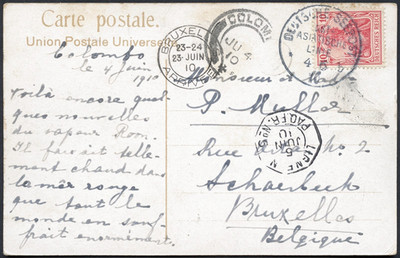 Carte postale.
Union Postale Universelle
Colombo
le 4 Juin 1910
Voilà encore quel-
ques nouvelles
du vapeur Rom.
Il faisait telle-
ment chaud dans
la mer rouge
que tout le
monde en souf-
frait énormément.
BRUXELLES
23-24
23 JUIN
10
ARRIVÉE
COLOMBO
JU 4
10
DEUTSCHE SEEPOST
OSTASIATISCHE
LINIE
4
Monsieur et
P. Muller
Rue No. 2
Schaerbeek
Bruxelles
Belgique
LIGNE N
PAQ. FR. No
5
JUIN
10